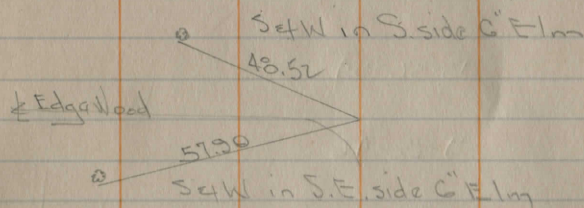 S&W in S. side 6" Elm
48.52
℄ EdgeWood
57.90
S&W in S.E. side 6" Elm